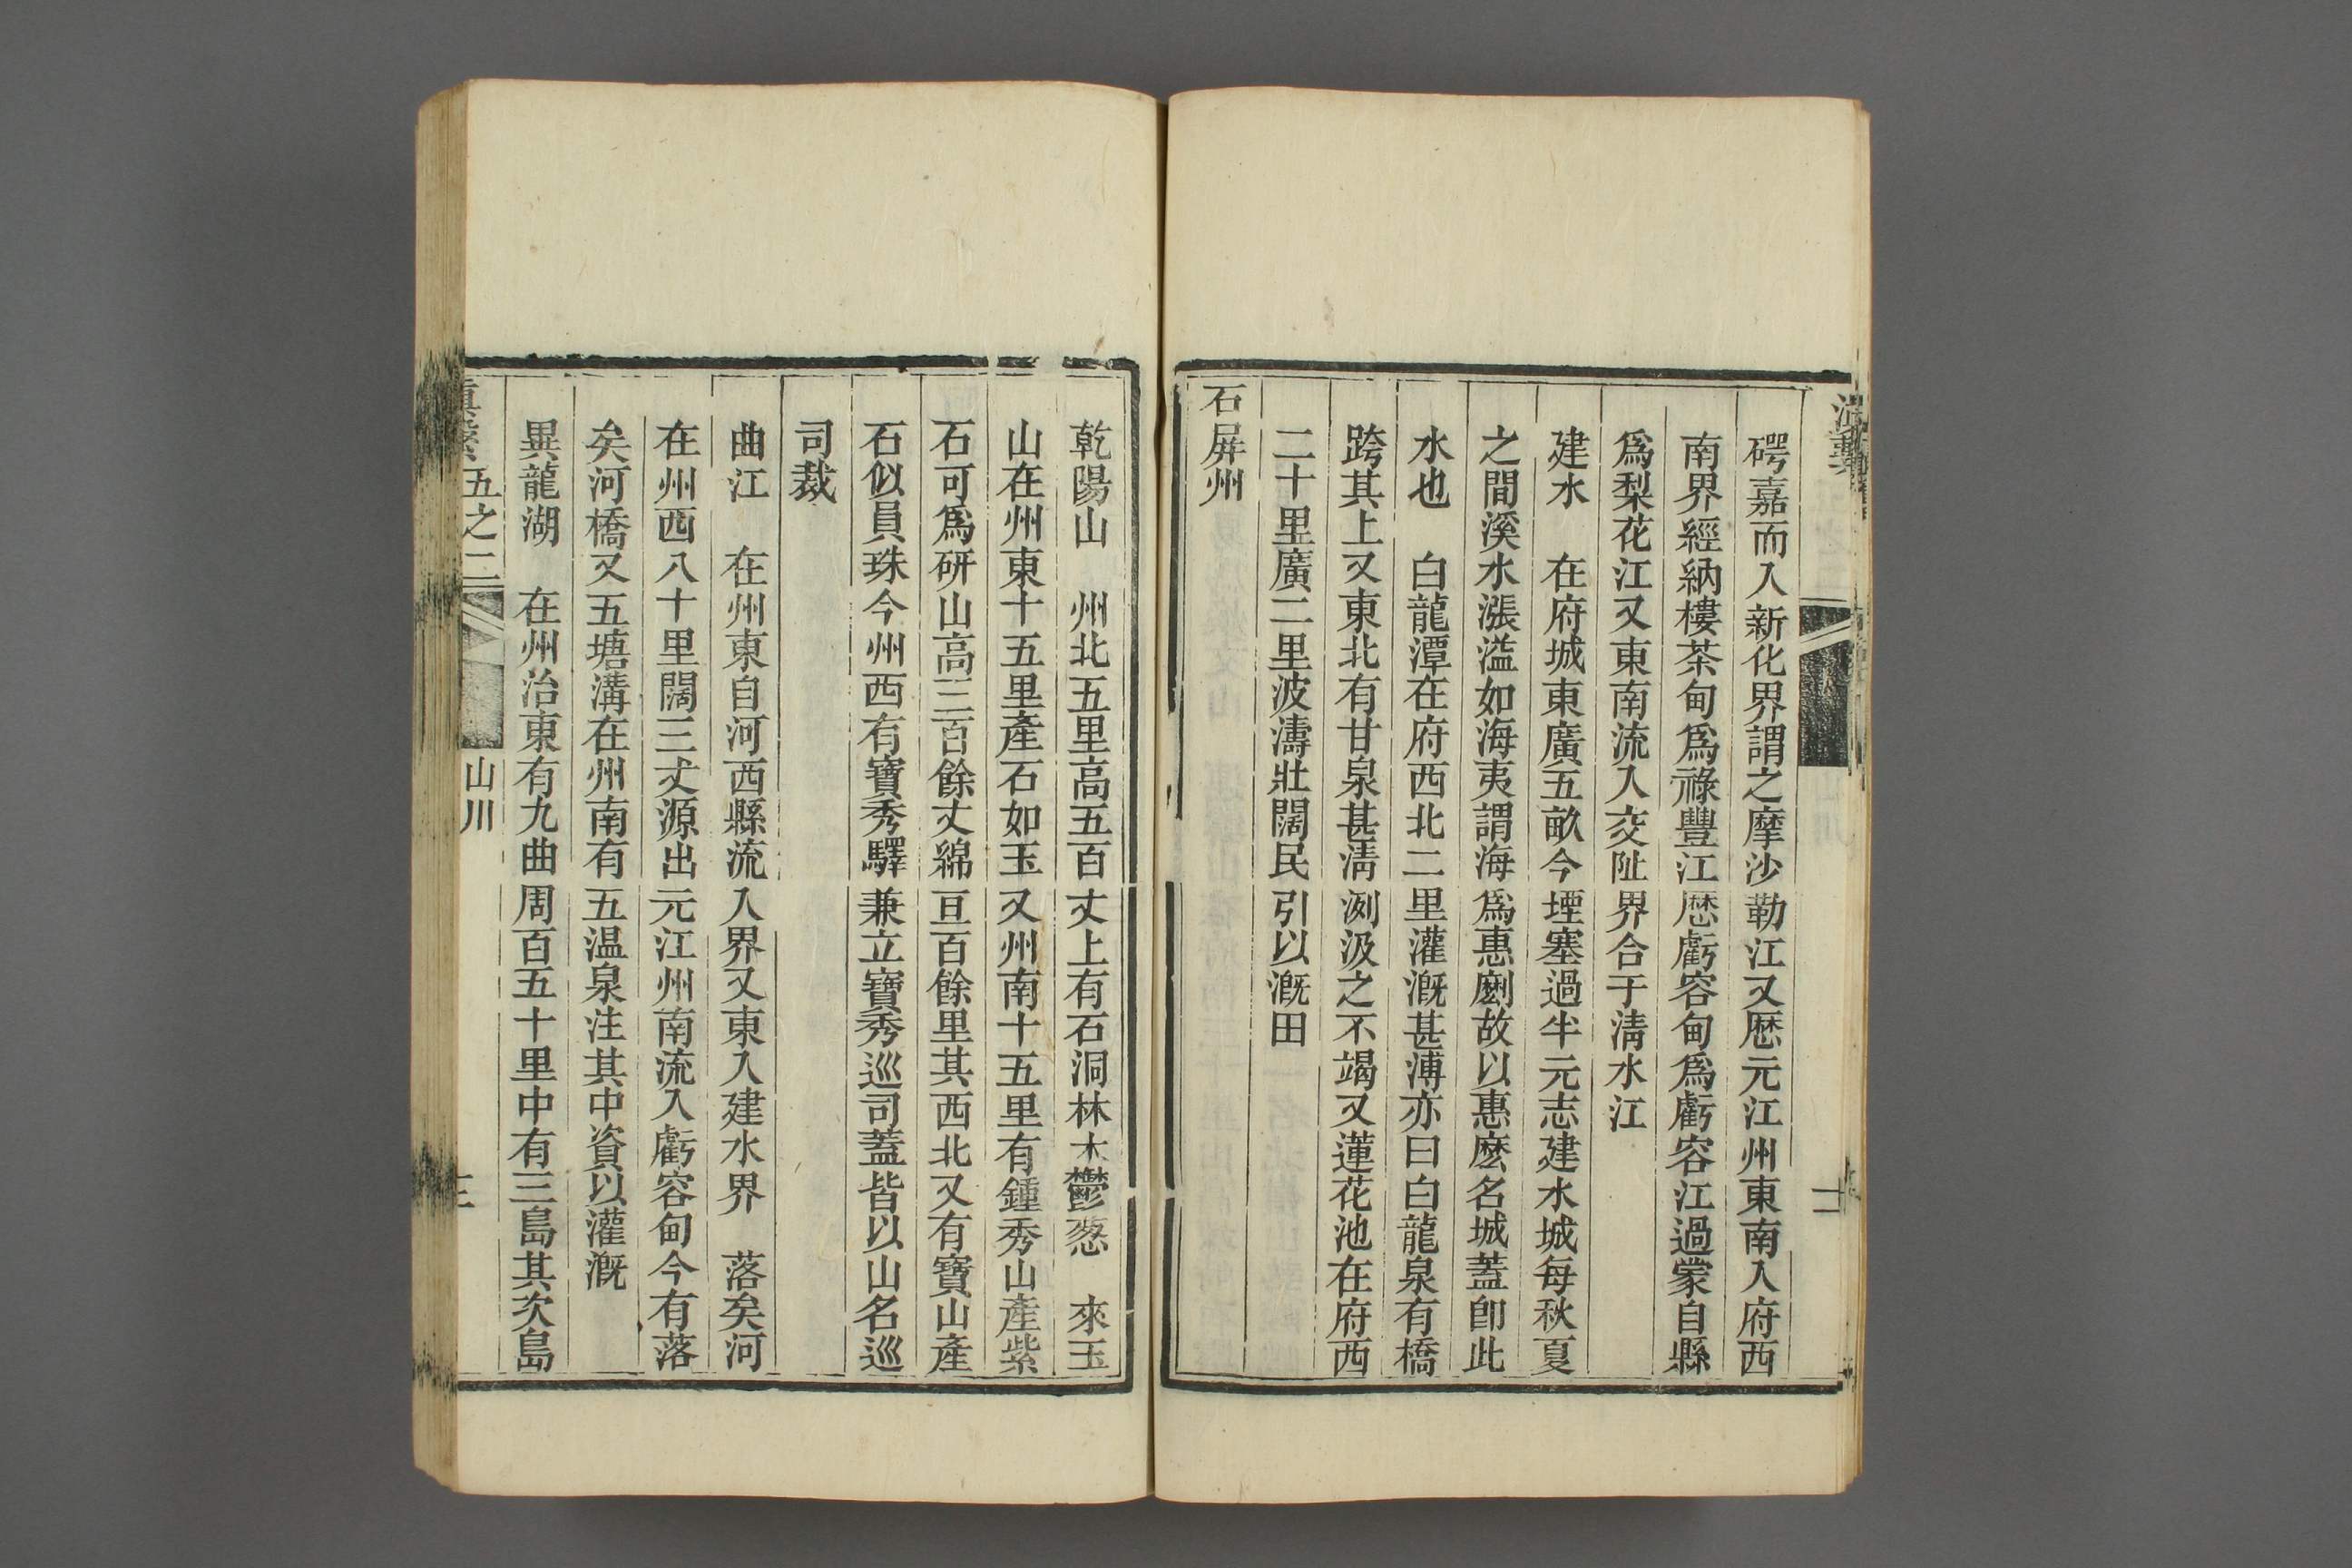 碍嘉而入新化界謂之摩沙勒江又歴元江州東南入府西
南界經納樓茶甸爲祿豐江歴虧容甸爲虧容江過蒙自縣
爲梨花江又東南流入交阯界合于淸水江
建水　在府城東廣五畝今堙塞過半元志建水城每秋夏
之間溪水漲溢如海夷謂海爲惠劚故以惠麽名城蓋卽此
水也　白龍潭在府西北二里灌漑甚溥亦曰白龍泉有橋
跨其上又東北有甘泉甚淸洌汲之不竭又蓮花池在府西
二十里廣二里波濤壯闊民引以漑田
石屏州
乾陽山　州北五里高五百丈上有石洞林木鬱葱　來玉
山在州東十五里產石如玉又州南十五里有鍾秀山產紫
石可爲硏山高三百餘丈綿亘百餘里其西北又有寶山產
石似員珠今州西有寶秀驛兼立寶秀巡司蓋皆以山名巡
司裁
曲江　在州東自河西縣流入界又東入建水界　落矣河
在州西八十里闊三丈源出元江州南流入虧容甸今有落
矣河橋又五塘溝在州南有五温泉注其中資以灌漑
異龍湖　在州治東有九曲周百五十里中有三島其次島
滇繫　五之二　山川